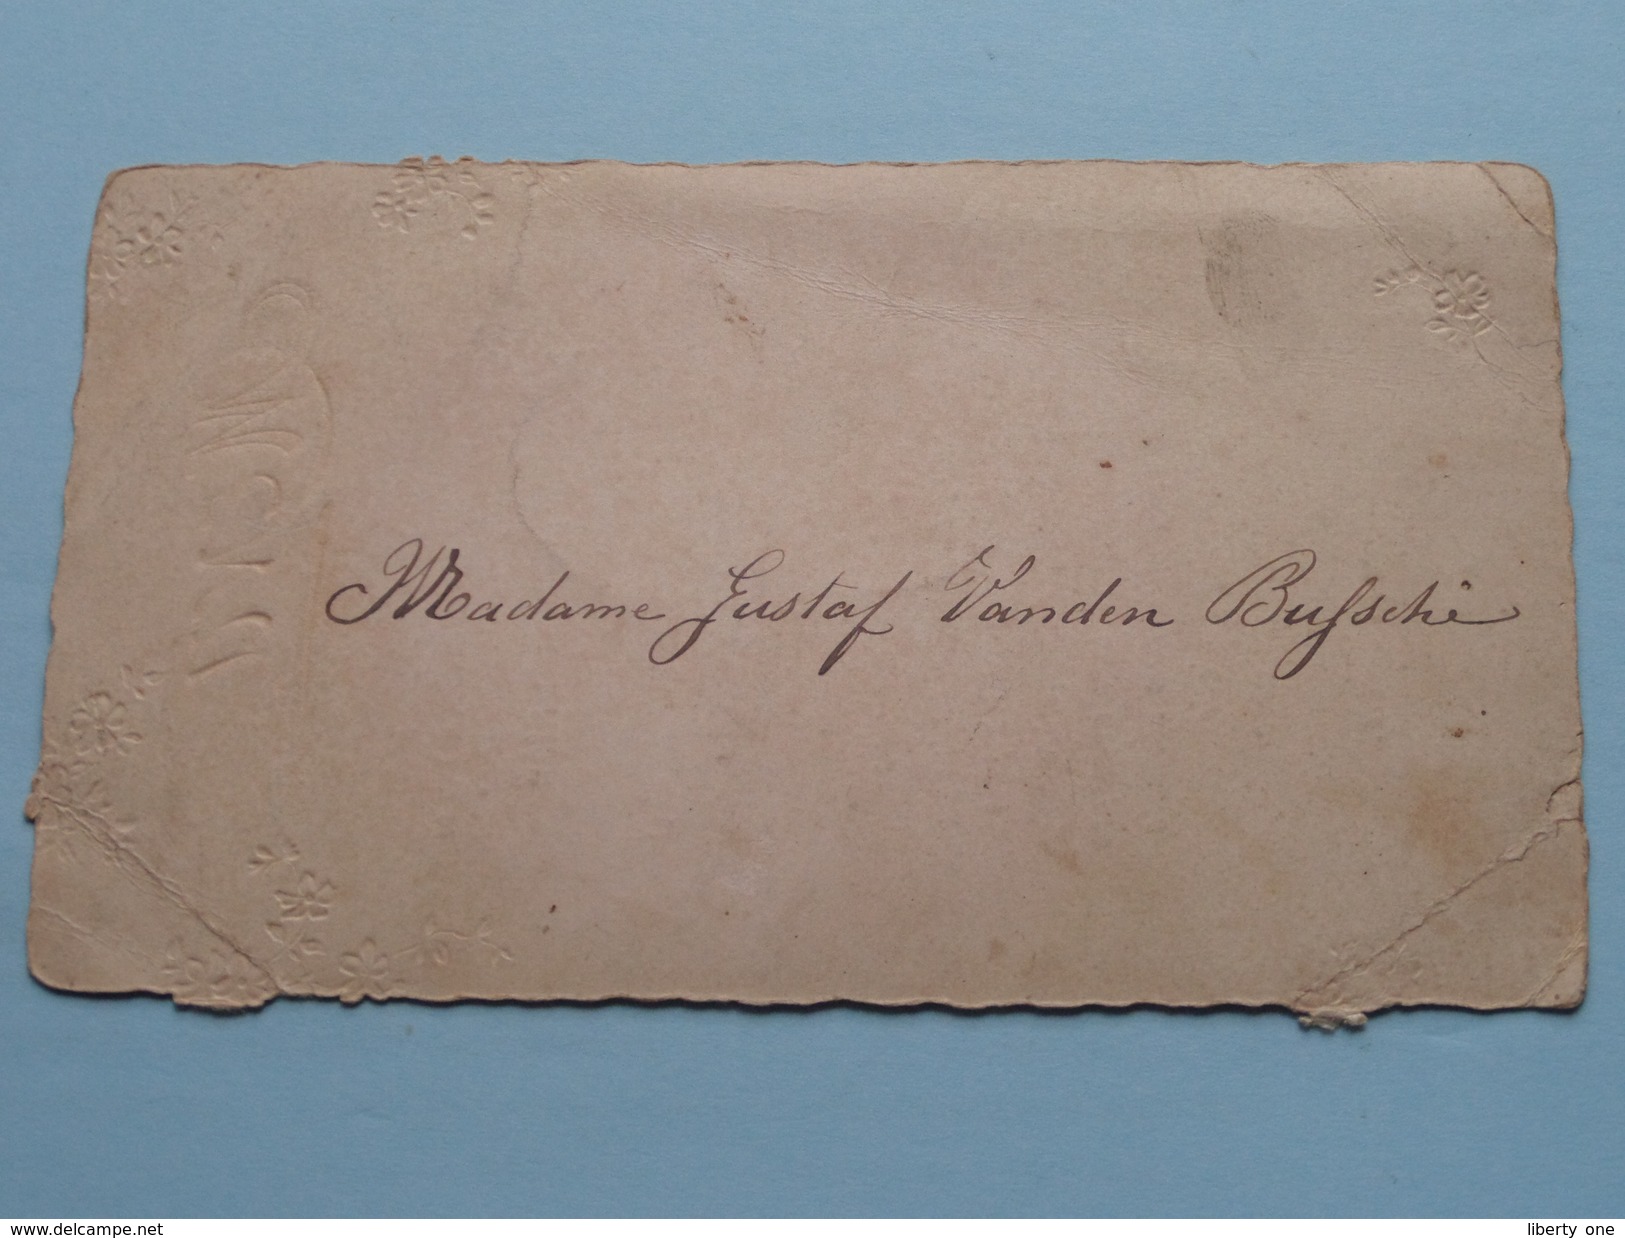 Madame Gustaf Vanden Bussche
delcampe.net
liberty one